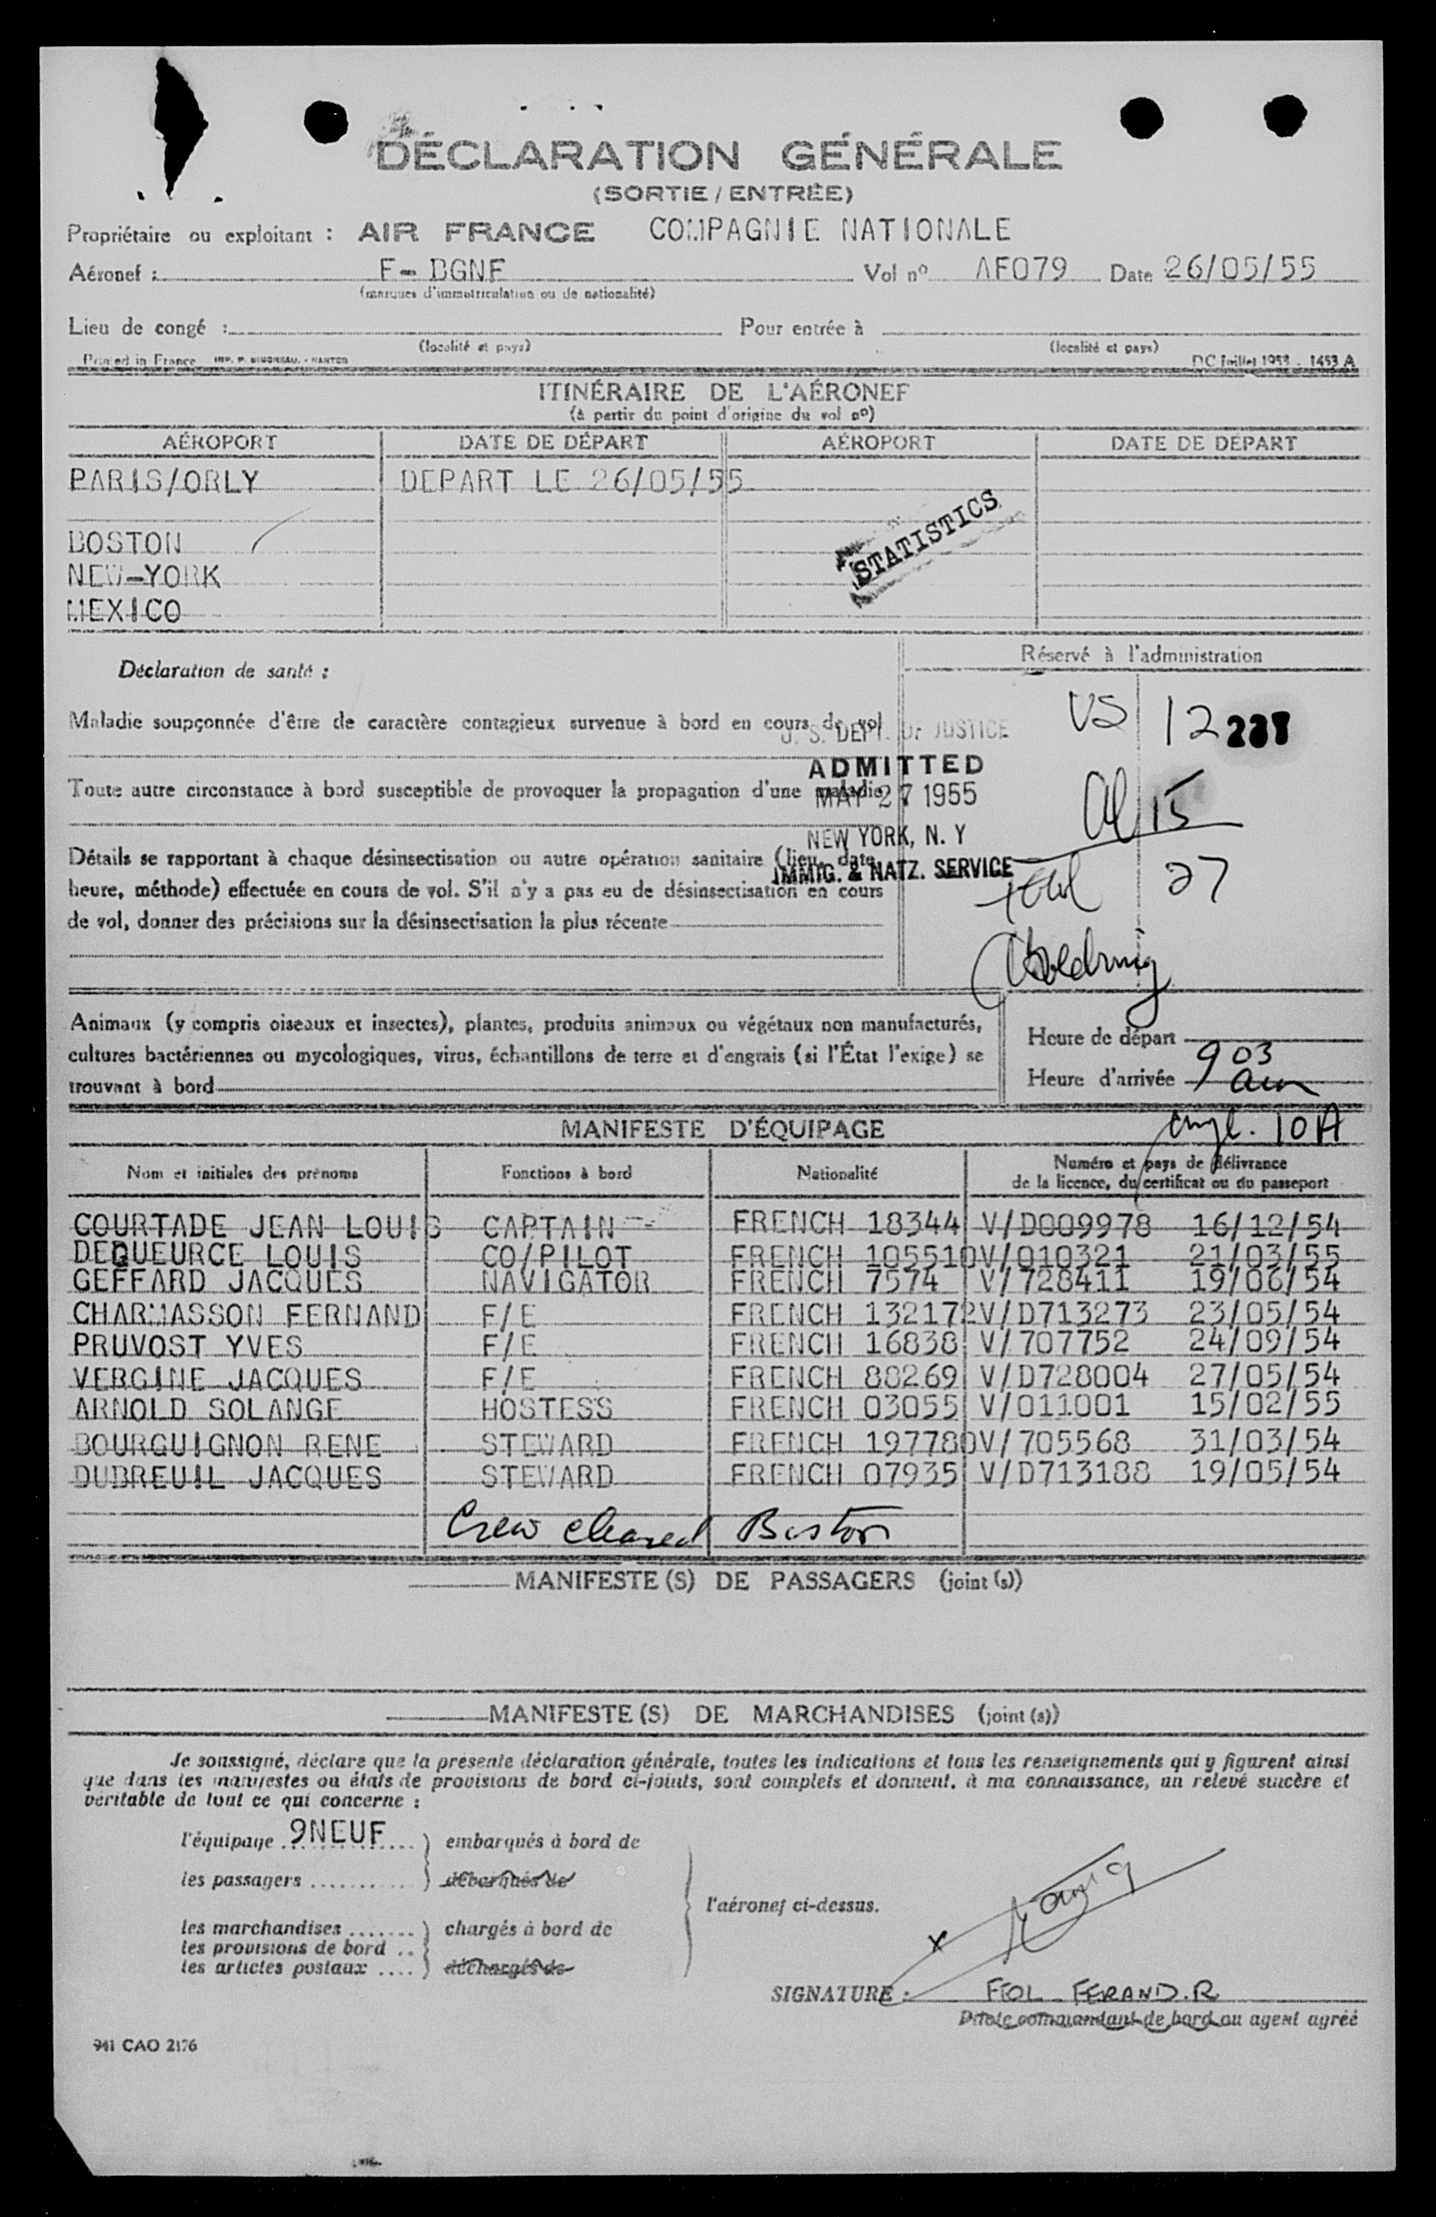 DÉCLARATION GÉNÉRALE
(SORTIE / ENTRÉE)
Propriétaire ou exploitant : AIR FRANCE COMPAGNIE NATIONALE
Aéronef : F-BGNF Vol nº AF079 Date 26/05/55
(marques d'immatriculation ou de nationalité)
Lieu de congé : Pour entrée à
(localité et pays) (localité et pays)
Printed in France DC Juillet 1953 - 1453 A
ITINÉRAIRE DE L'AÉRONEF
(à partir du point d'origine du vol nº)
AÉROPORT DATE DE DÉPART AÉROPORT DATE DE DÉPART
PARIS/ORLY DEPART LE 26/05/55
STATISTICS
BOSTON
NEW-YORK
MEXICO
Réservé à l'administration
Déclaration de santé :
VS 12
Maladie soupçonnée d'être de caractère contagieux survenue à bord en cours de vol
U. S. DEPT. OF JUSTICE
ADMITTED
Toute autre circonstance à bord susceptible de provoquer la propagation d'une maladie
MAY 27 1955
Al 15
NEW YORK, N. Y
Détails se rapportant à chaque désinsectisation ou autre opération sanitaire (lieu, date,
IMMIG. & NATZ. SERVICE
27
heure, méthode) effectuée en cours de vol. S'il n'y a pas eu de désinsectisation en cours
de vol, donner des précisions sur la désinsectisation la plus récente
Animaux (y compris oiseaux et insectes), plantes, produits animaux ou végétaux non manufacturés,
cultures bactériennes ou mycologiques, virus, échantillons de terre et d'engrais (si l'État l'exige) se
trouvant à bord
Heure de départ
Heure d'arrivée 9 03 am
10A
MANIFESTE D'ÉQUIPAGE
Nom et initiales des prénoms Fonctions à bord Nationalité Numéro et pays de délivrance
de la licence, du certificat ou du passeport
COURTADE JEAN LOUIS CAPTAIN FRENCH 18344 V/D009978 16/12/54
DEQUEURCE LOUIS CO/PILOT FRENCH 105510 V/010321 21/03/55
GEFFARD JACQUES NAVIGATOR FRENCH 7574 V/728411 19/06/54
CHARMASSON FERNAND F/E FRENCH 132172 V/D713273 23/05/54
PRUVOST YVES F/E FRENCH 16838 V/707752 24/09/54
VERGINE JACQUES F/E FRENCH 88269 V/D728004 27/05/54
ARNOLD SOLANGE HOSTESS FRENCH 03055 V/011001 15/02/55
BOURGUIGNON RENE STEWARD FRENCH 197780 V/705568 31/03/54
DUBREUIL JACQUES STEWARD FRENCH 07935 V/D713188 19/05/54
Crew cleared Boston
MANIFESTE (S) DE PASSAGERS (joint (s))
MANIFESTE (S) DE MARCHANDISES (joint (s))
Je soussigné, déclare que la présente déclaration générale, toutes les indications et tous les renseignements qui y figurent ainsi
que dans les manifestes ou états de provisions de bord ci-joints, sont complets et donnent, à ma connaissance, un relevé sincère et
véritable de tout ce qui concerne :
l'équipage 9NEUF ) embarqués à bord de
les passagers ........... ) débarqués de
l'aéronef ci-dessus.
les marchandises ....... ) chargés à bord de
les provisions de bord ..
les articles postaux .... ) déchargés de
x
SIGNATURE : FEOL FERAND. R
Pilote commandant de bord ou agent agréé
941 CAO 2176